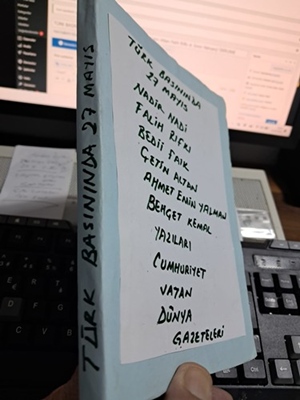 TÜRK BASININDA 27 MAYIS
TÜRK BASININDA
27 MAYIS
NADİR NADİ
FALİH RIFKI
BEDİİ FAİK
ÇETİN ALTAN
AHMET EMİN YALMAN
BEHÇET KEMAL
YAZILARI
CUMHURİYET
VATAN
DÜNYA
GAZETELERİ